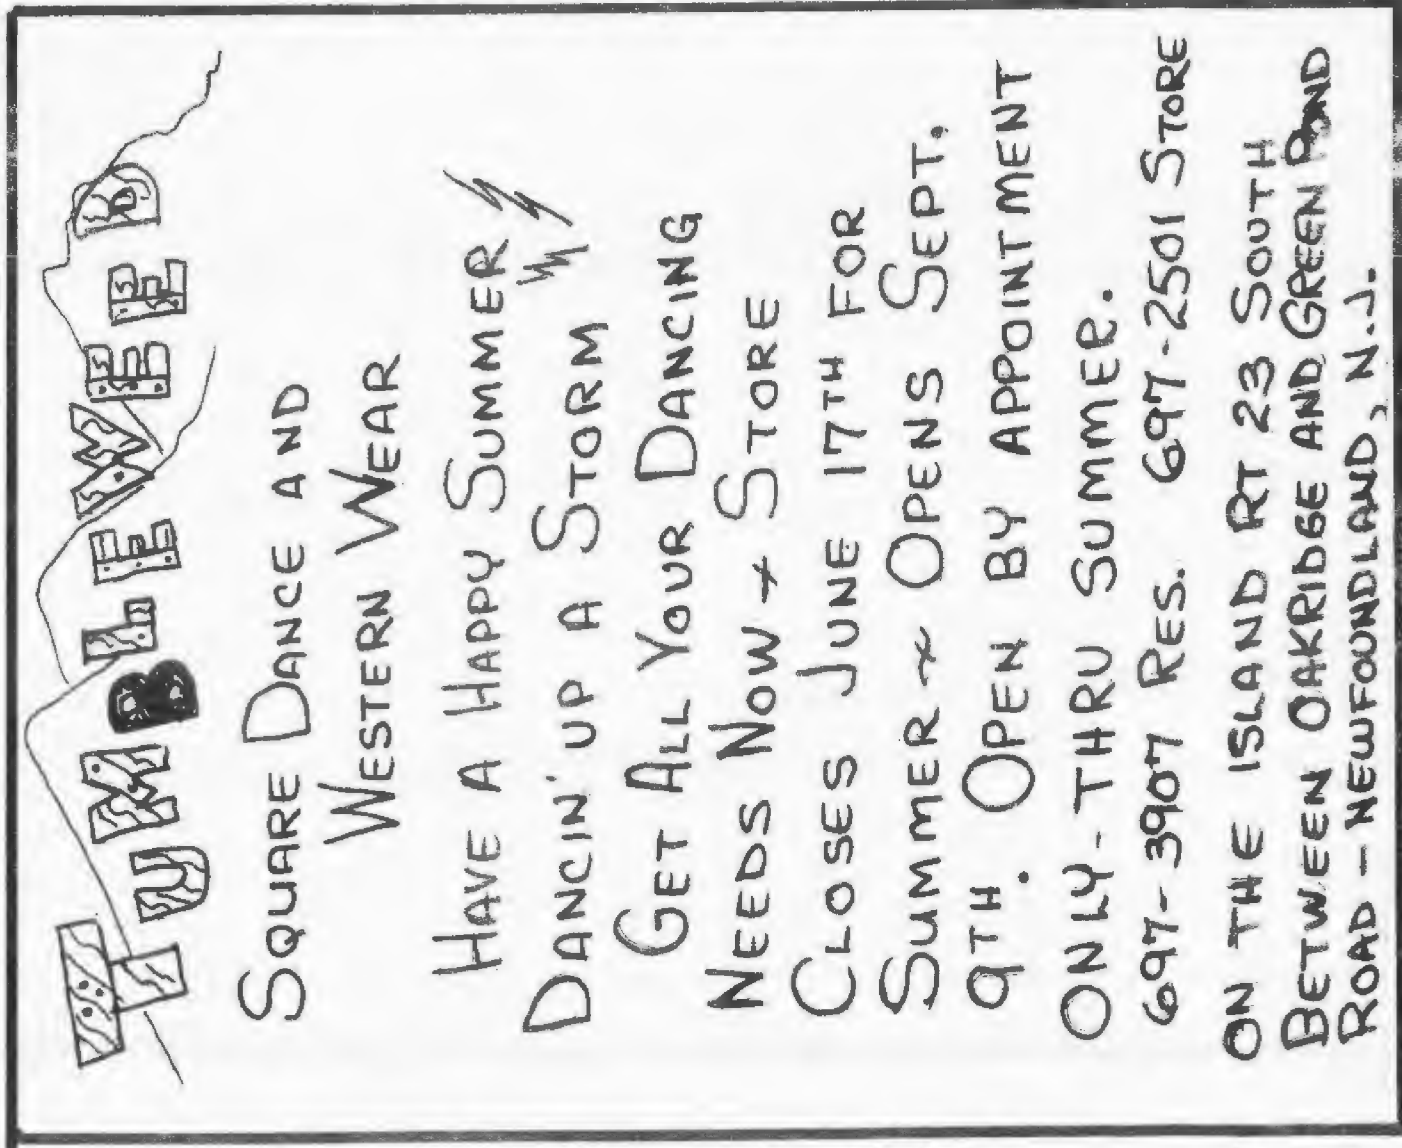 TUMBLEWEED
SQUARE DANCE AND
WESTERN WEAR
HAVE A HAPPY SUMMER
DANCIN' UP A STORM
GET ALL YOUR DANCING
NEEDS NOW ~ STORE
CLOSES JUNE 17TH FOR
SUMMER ~ OPENS SEPT.
9TH. OPEN BY APPOINTMENT
ONLY - THRU SUMMER.
697-3907 RES. 697-2501 STORE
ON THE ISLAND RT 23 SOUTH
BETWEEN OAKRIDGE AND GREEN POND
ROAD - NEWFOUNDLAND, N.J.